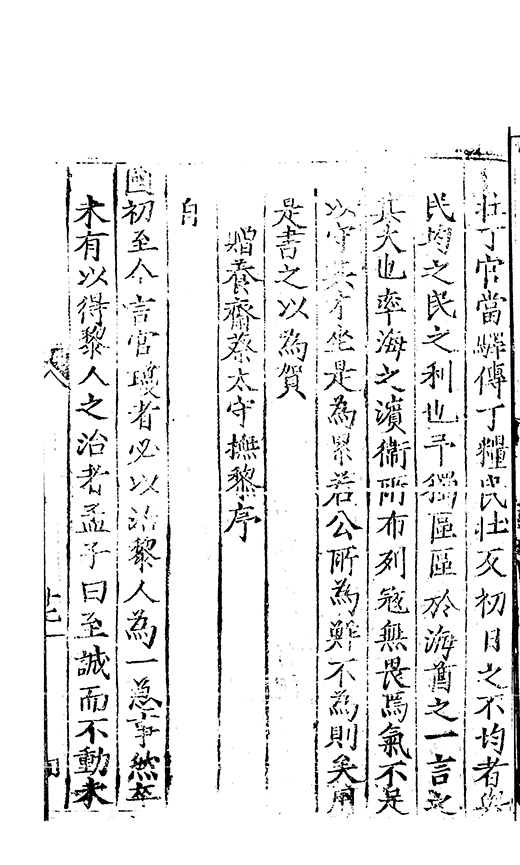 壯丁官當驛傳丁糧民壯反初日之不均者與
民均之民之利也予獨區區於海酋之一言之
其大也率海之濱衛所布列冦無畏焉氣不足
以守其才坐是為累若公所為鮮不為則矣用
是書之以為賀
贈養齋蔡太守撫黎序
自
國初至今言官瓊者必以治黎人為一急事然卒
未有以得黎人之治者孟子曰至誠而不動未